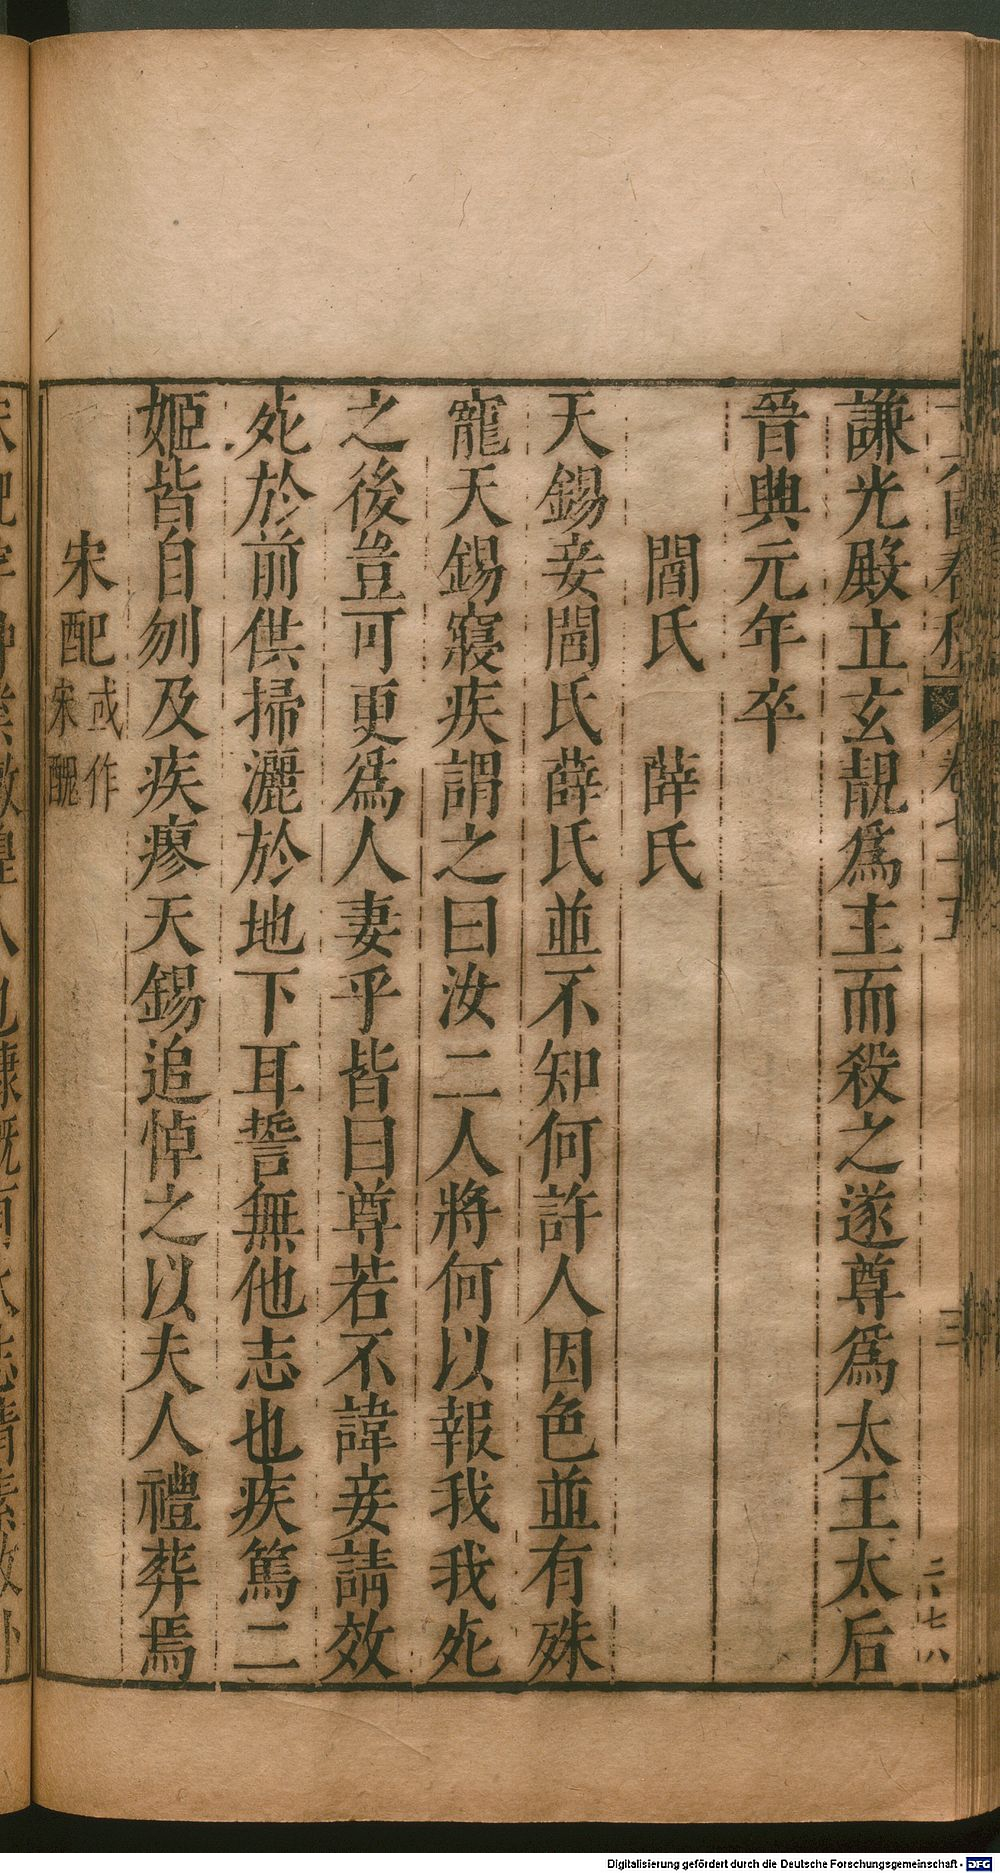 謙光殿立玄靚爲主而殺之遂尊爲太王太后
晉興元年卒
閻氏　薛氏
天錫妾閻氏薛氏並不知何許人因色並有殊
寵天錫寢疾謂之曰汝二人將何以報我我死
之後豈可更爲人妻乎皆曰尊若不諱妾請效
死於前供掃灑於地下耳誓無他志也疾篤二
姬皆自刎及疾瘳天錫追悼之以夫人禮葬焉
宋配或作宋醜
三
二七八
Digitalisierung gefördert durch die Deutsche Forschungsgemeinschaft - DFG